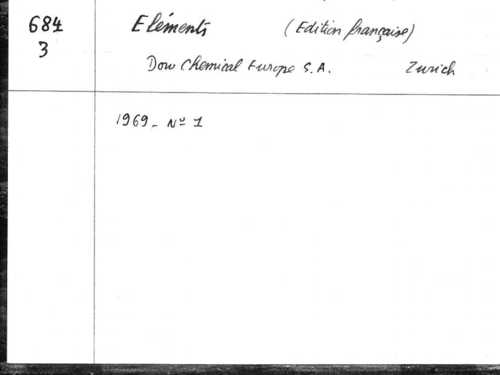 684 Eléments (Edition française)
3 Dow Chemical Europe S.A. Zurich
1969 - Nº 1